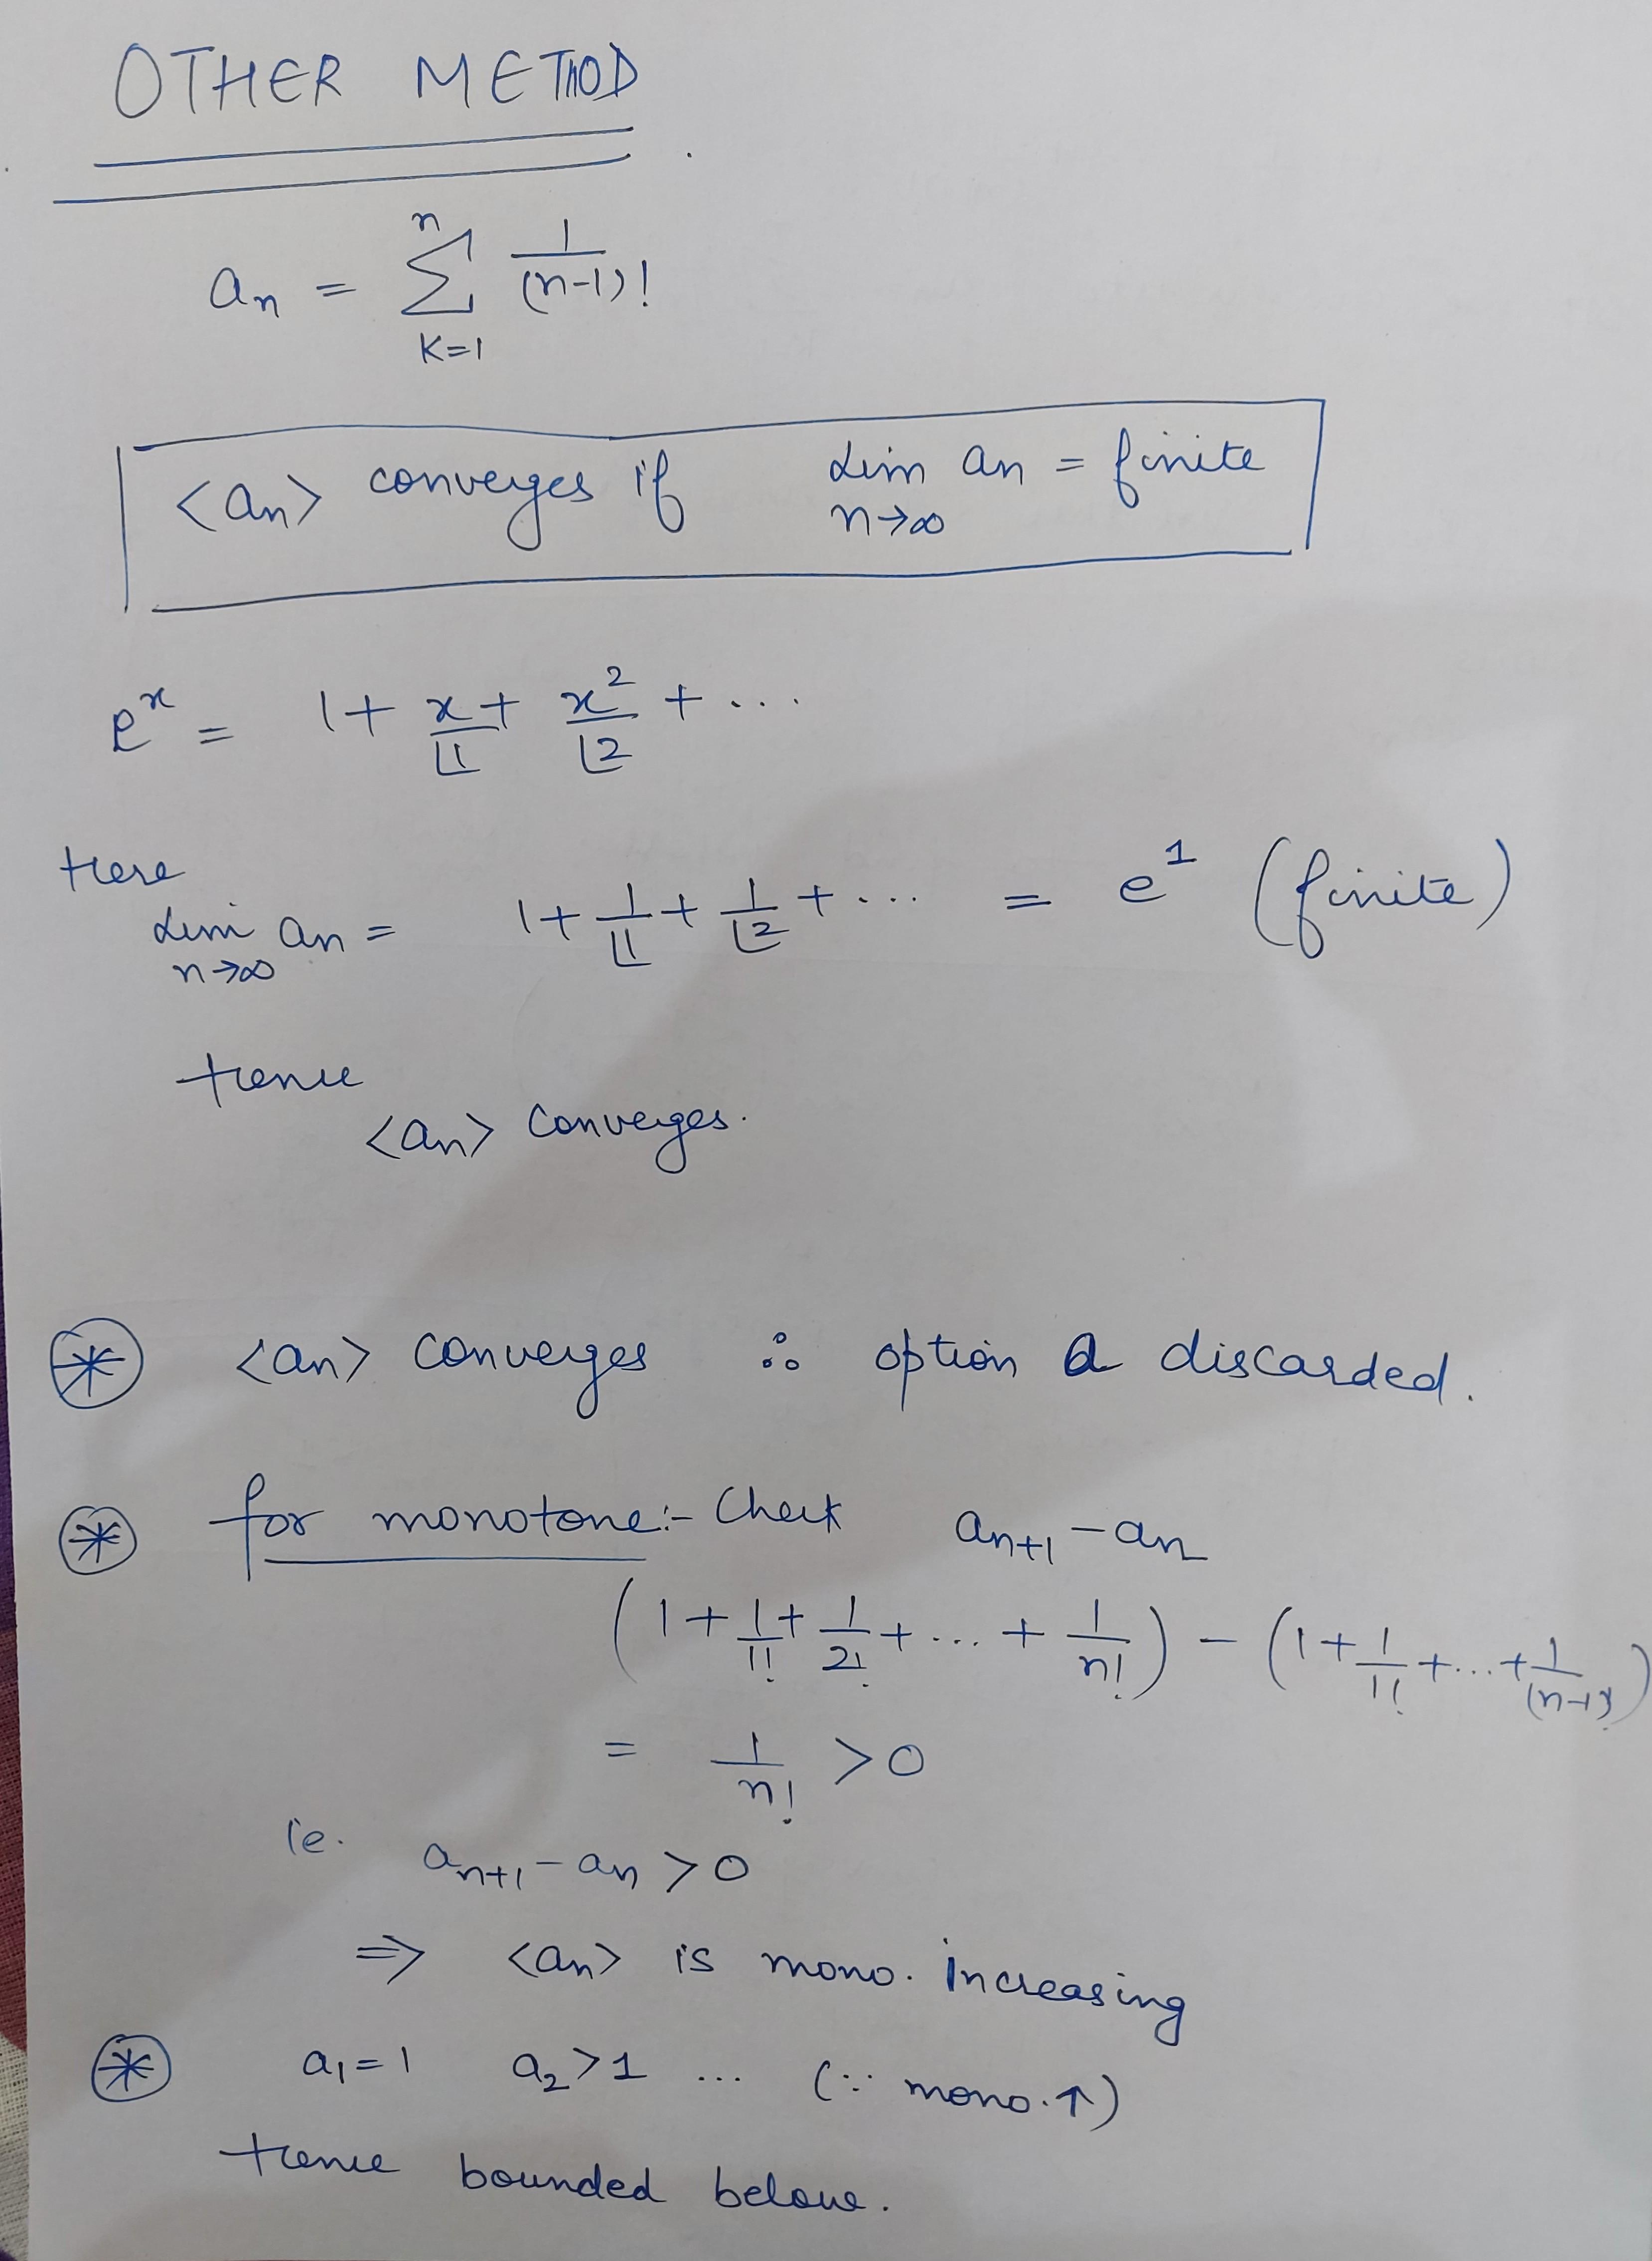 OTHER METHOD
an = n∑K=1 1/(n-1)!
<an> converges if Lim n→∞ an = finite
e^x = 1 + x/⌊1 + x²/⌊2 + ...
Here
Lim n→∞ an = 1 + 1/⌊1 + 1/⌊2 + ... = e^1 (finite)
Hence
<an> Converges.
⊛ <an> Converges ∴ option a discarded.
⊛ for monotone:- Check an+1 - an
(1 + 1/1! + 1/2! + ... + 1/n!) - (1 + 1/1! + ... + 1/(n-1)!)
= 1/n! > 0
ie. an+1 - an > 0
⇒ <an> is mono. Increasing
⊛ a1 = 1 a2 > 1 ... (∵ mono.↑)
Hence bounded below.